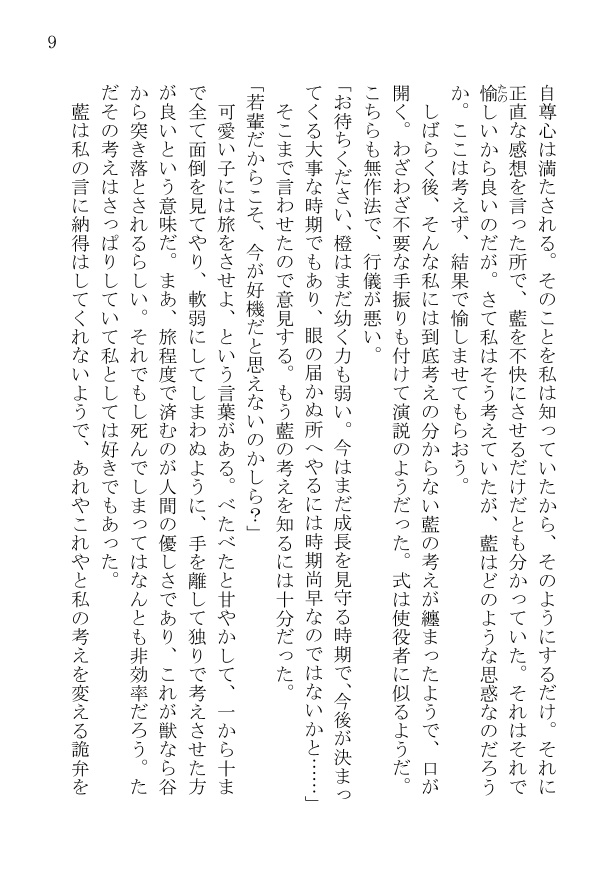 9
自尊心は満たされる。そのことを私は知っていたから、そのようにするだけ。それに
正直な感想を言った所で、藍を不快にさせるだけだとも分かっていた。それはそれで
愉しいから良いのだが。さて私はそう考えていたが、藍はどのような思惑なのだろう
たの
か。ここは考えず、結果で愉しませてもらおう。
しばらく後、そんな私には到底考えの分からない藍の考えが纏まったようで、口が
開く。わざわざ不要な手振りも付けて演説のようだった。式は使役者に似るようだ。
こちらも無作法で、行儀が悪い。
「お待ちください、橙はまだ幼く力も弱い。今はまだ成長を見守る時期で、今後が決まっ
てくる大事な時期でもあり、眼の届かぬ所へやるには時期尚早なのではないかと……」
そこまで言わせたので意見する。もう藍の考えを知るには十分だった。
「若輩だからこそ、今が好機だと思えないのかしら？」
可愛い子には旅をさせよ、という言葉がある。べたべたと甘やかして、一から十ま
で全て面倒を見てやり、軟弱にしてしまわぬように、手を離して独りで考えさせた方
が良いという意味だ。まあ、旅程度で済むのが人間の優しさであり、これが獣なら谷
から突き落とされるらしい。それでもし死んでしまってはなんとも非効率だろう。た
だその考えはさっぱりしていて私としては好きでもあった。
藍は私の言に納得はしてくれないようで、あれやこれやと私の考えを変える詭弁を